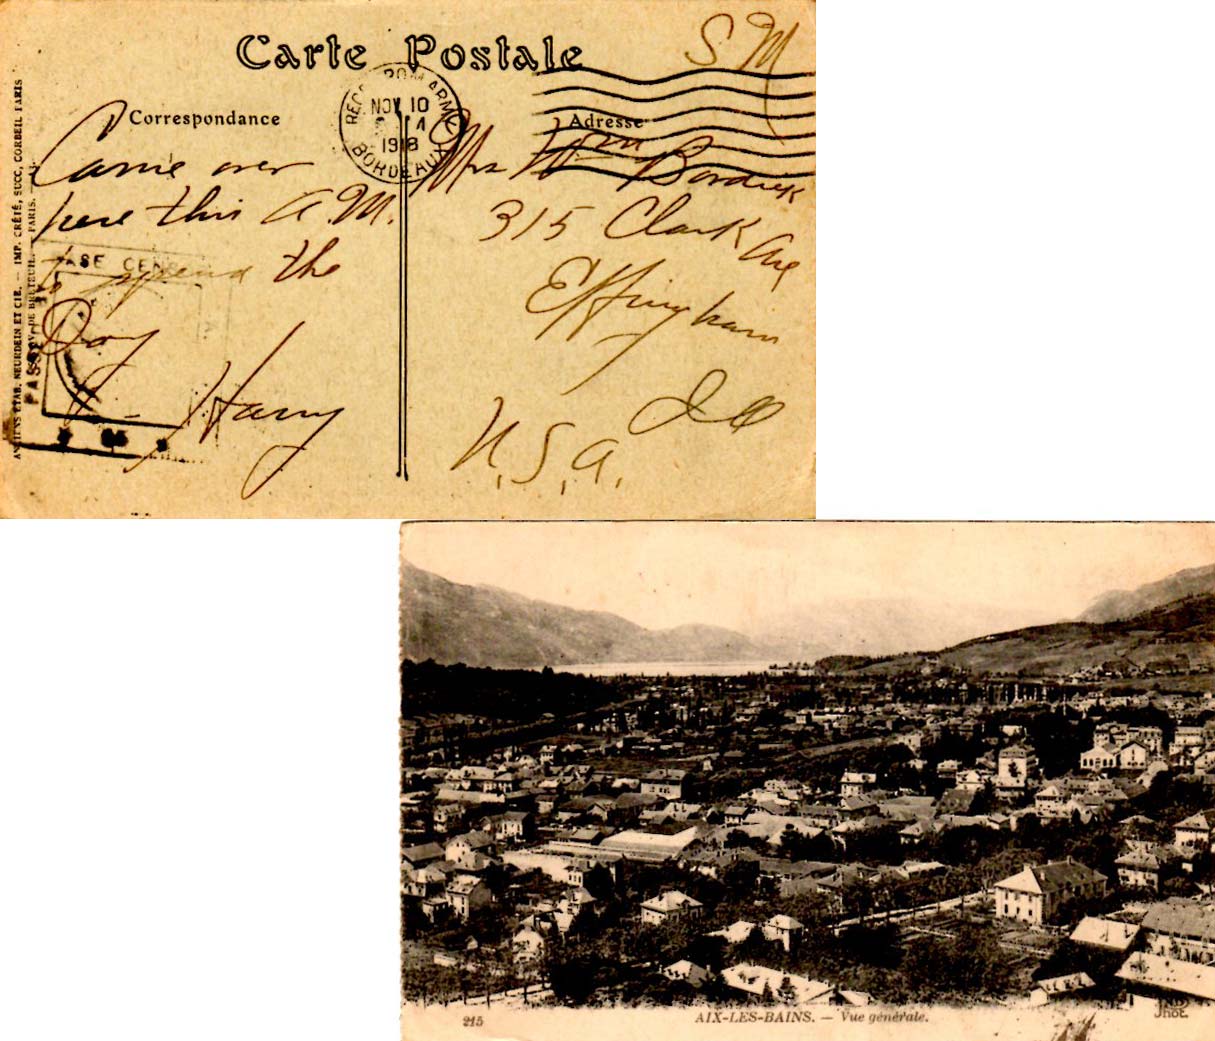 Carte Postale
S M
Correspondance
Adresse
NOV 10
1918
BORDEAUX
Came over
here this A.M.
to spend the
Day
Harry
Mrs Wm Bordick
315 Clark Ave
Effingham
Ill
U.S.A.
BASE CEN
PASSE
ANCIENS ETAB. NEURDEIN ET CIE. — IMP. CRÉTÉ, SUCC, CORBEIL PARIS
DE BRETEUIL. — PARIS.
215
AIX-LES-BAINS. — Vue générale.
ND Phot.